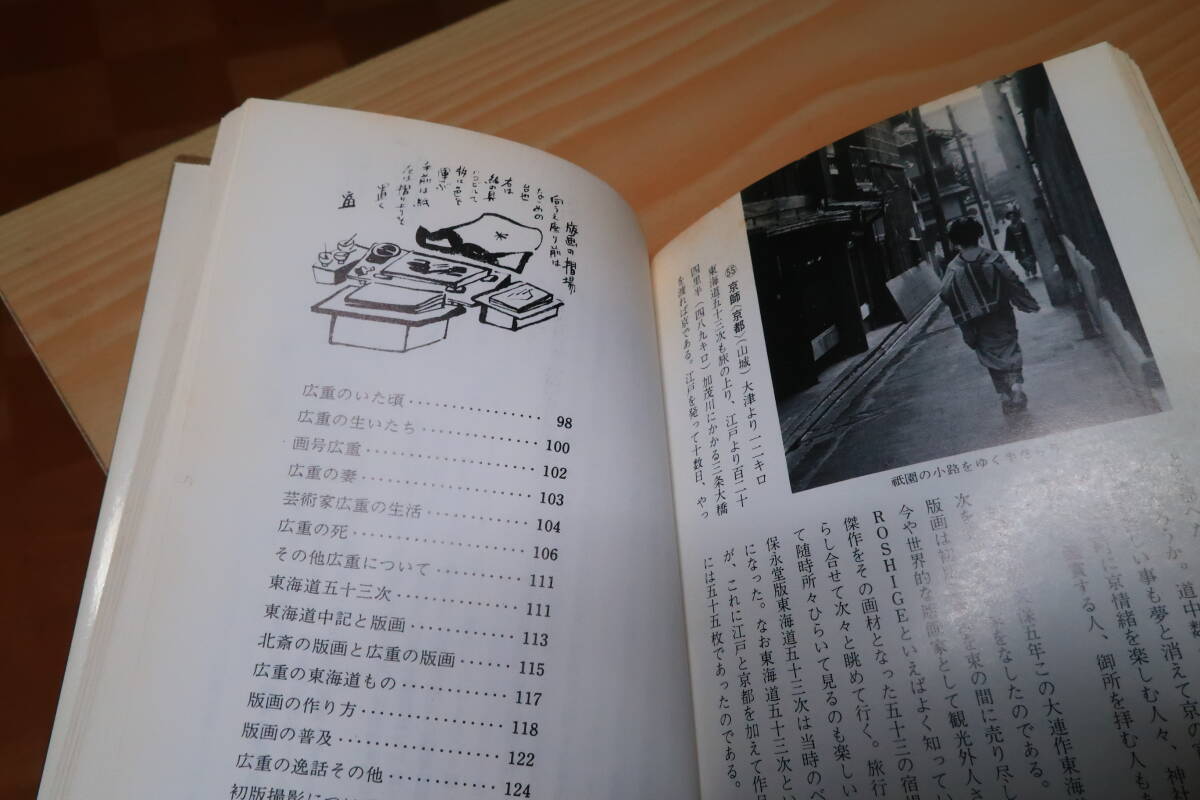 版画の摺場
向うえ座り前は
ななめの
台也
右は
絵の具
いつでも
色を
運ぶ
手前は紙
左は摺り上りを
置く
広重のいた頃 98
広重の生いたち 100
画号広重 102
広重の妻 103
芸術家広重の生活 104
広重の死 106
その他広重について 111
東海道五十三次 111
東海道中記と版画 113
北斎の版画と広重の版画 115
広重の東海道もの 117
版画の作り方 118
版画の普及 122
広重の逸話その他 124
初版撮影につ
55 京師(京都)(山城) 大津より一二キロ
東海道五十三次も旅の上り、江戸より百二十
四里半(四八九キロ)加茂川にかかる三条大橋
を渡れば京である。江戸を発って十数日、やっ
祇園の小路をゆく
うか。道中数
しい事も夢と消えて京の
に京情緒を楽しむ人々、神社
賞する人、御所を拝む人も
次を
保五年この大連作東海
版画は初
を東の間に売り尽し
をなしたのである。
今や世界的な版画家として観光外人さ
ROSHIGEといえばよく知ってい
傑作をその画材となった五十三の宿場
らし合せて次々と眺めて行く。旅行
て随時所々ひらいて見るのも楽しい
保永堂版東海道五十三次は当時のベ
になった。なお東海道五十三次とい
が、これに江戸と京都を加えて作品
には五十五枚であったのである。